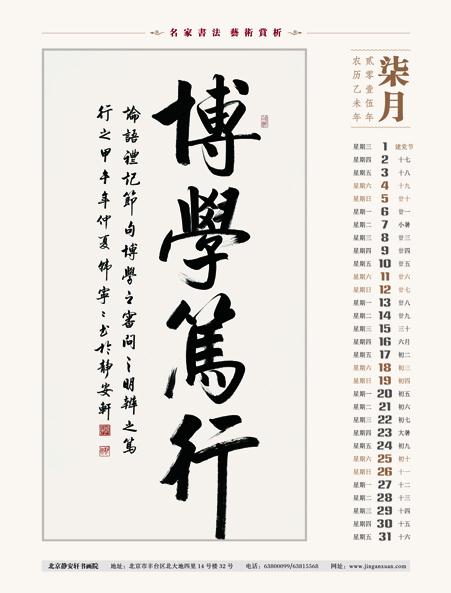 名家書法 藝術賞析
柒月
貳零壹伍年
农历乙未年
博學篤行
論語禮記節句博學之審問之明辨之篤
行之甲午年仲夏韩寧寧书於静安軒
星期三 1 建党节
星期四 2 十七
星期五 3 十八
星期六 4 十九
星期日 5 廿十
星期一 6 廿一
星期二 7 小暑
星期三 8 廿三
星期四 9 廿四
星期五 10 廿五
星期六 11 廿六
星期日 12 廿七
星期一 13 廿八
星期二 14 廿九
星期三 15 三十
星期四 16 六月
星期五 17 初二
星期六 18 初三
星期日 19 初四
星期一 20 初五
星期二 21 初六
星期三 22 初七
星期四 23 大暑
星期五 24 初九
星期六 25 初十
星期日 26 十一
星期一 27 十二
星期二 28 十三
星期三 29 十四
星期四 30 十五
星期五 31 十六
北京静安轩书画院 地址：北京市丰台区北大地四里14号楼32号 电话：63800099/63815568 网址：www.jinganxuan.com